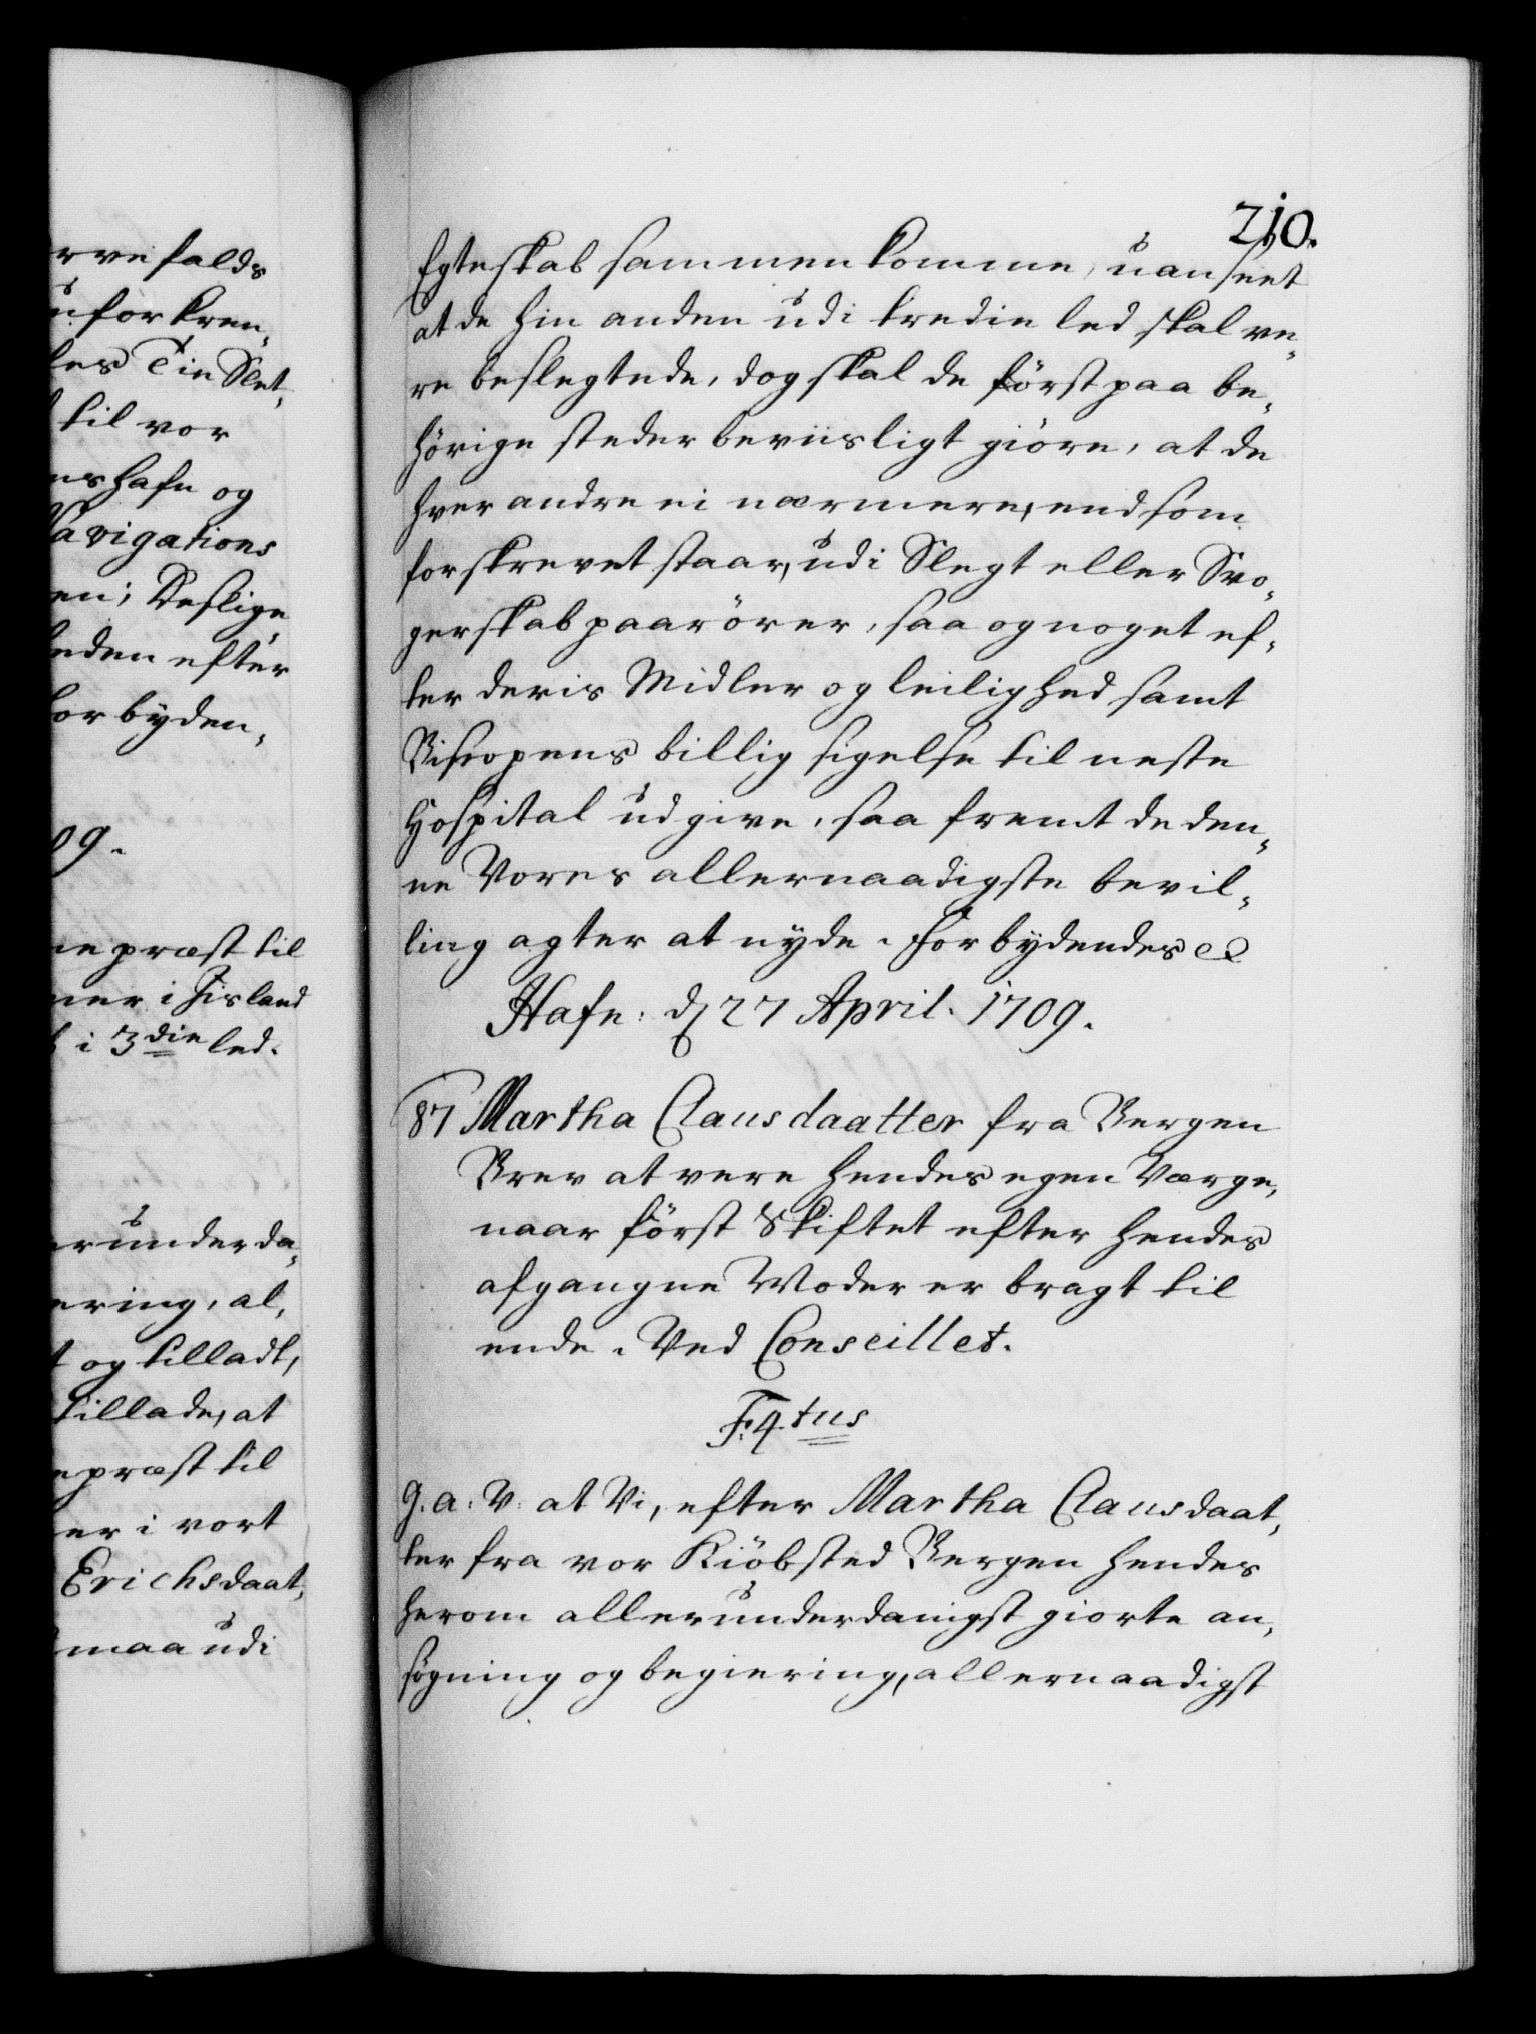 rve falds
uforkren„
les Tie Slet„
til vor
nshafn og
Navigations
en; Deslige
eden efter
Forbyden„
09.
ne præst til
ner i Jisland
i 3die led.
erunderda„
ering, al„
t og tilladt,
tillade, at
epræst til
er i vort
Erichsdaat„
maa udi
210.
Egteskab sammenkomme, uanseet
at de hin anden udi tredie led skal ve„
re beslegtede, dog skal de först paa be„
hörige steder beviisligt giöre, at de
hver andre ei nærmere, end som
forskrevet staar, udi Slegt eller Svo„
gerskab paarörer, saa og noget ef„
ter deris Midler og leilighed samt
Biscopens billig sigelse til neste
Hospital udgive, saa fremt de den„
ne Vores allernaadigste bevil„
ling agter at nyde. Forbydendes ec
Hafn: d 27 April. 1709.
87 Martha Clausdaatter fra Bergen
Brev at vere hendes egen Værge,
naar först Skiftet efter hendes
afgangne Moder er bragt til
ende. Ved Conseillet.
F: 4.tus
G. a: V: at Vi, efter Martha Clausdaat„
ter fra vor Kiöbsted Bergen hendes
herom allerunderdanigst giorte an„
sögning og begiering, allernaadigst